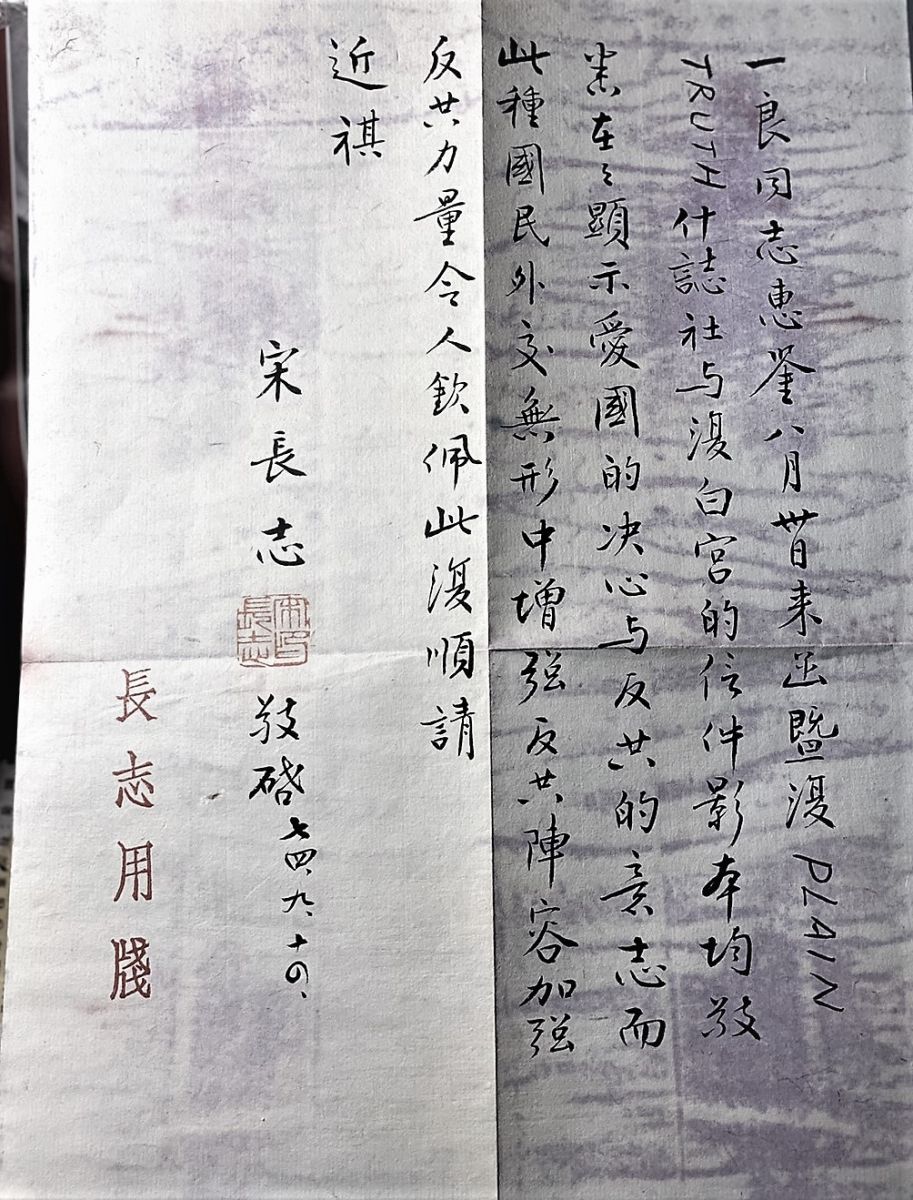 一良同志惠鉴八月廿日来函暨復 PLAIN
TRUTH什誌社与復白宮的信件影本均敬
悉在在顯示愛國的决心与反共的意志而
此種國民外交無形中增强反共陣容加强
反共力量令人欽佩此復順請
近祺
宋長志
宋長志印
敬啓 七四、九、十四、
長志用牋